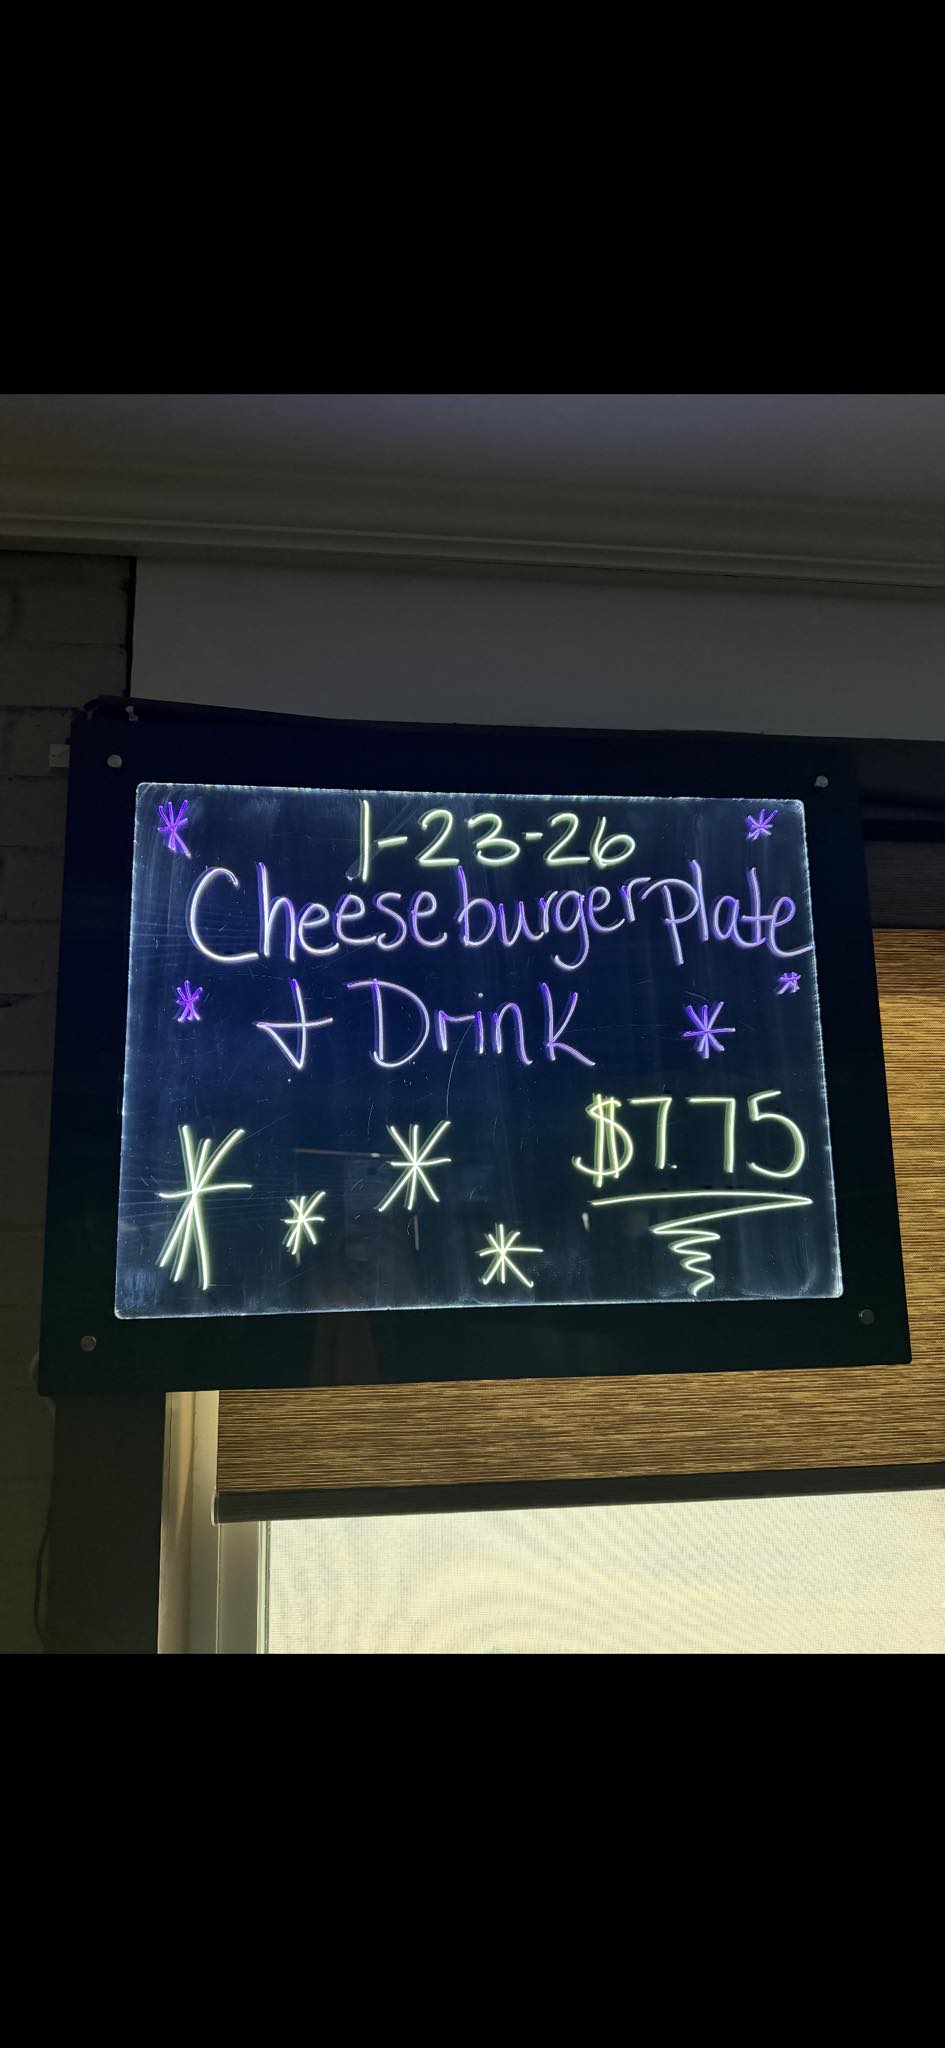 1-23-26
Cheeseburger Plate
+ Drink
$7.75